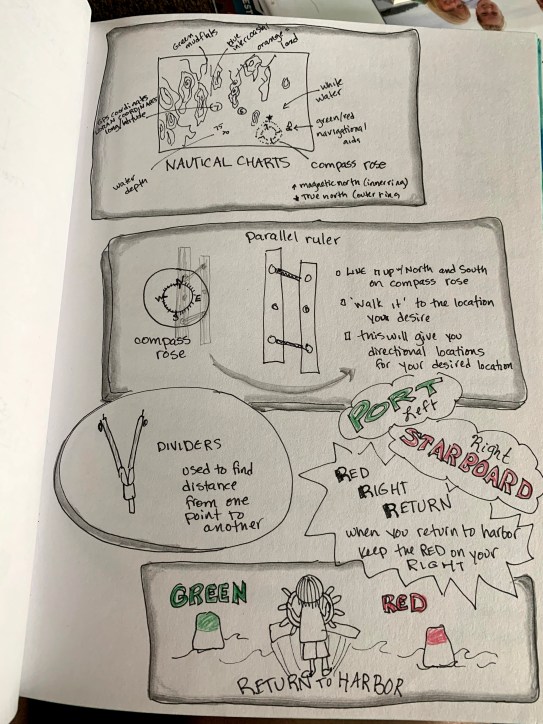 Green mudflats
blue intercoastal
orange land
GPS coordinates
LORAN COORDINATES
long/latitude
white water
green/red navigational aids
water depth
NAUTICAL CHARTS
compass rose
magnetic north (inner ring)
True north (outer ring
Parallel ruler
N
E
S
W
compass rose
Line it up w/ North and South
on compass rose
'walk it' to the location
you desire
this will give you
directional locations
for your desired location
PORT
Left
Right
STARBOARD
DIVIDERS
used to find
distance
from one
point to
another
RED
RIGHT
RETURN
when you return to harbor
keep the RED on your
RIGHT
GREEN
RED
RETURN TO HARBOR